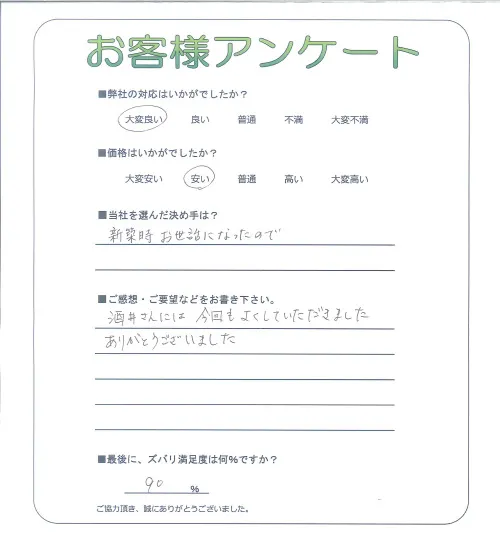 お客様アンケート
■弊社の対応はいかがでしたか？
大変良い 良い 普通 不満 大変不満
■価格はいかがでしたか？
大変安い 安い 普通 高い 大変高い
■当社を選んだ決め手は？
新築時 お世話になったので
■ご感想・ご要望などをお書き下さい。
酒井さんには 今回も よくしていただきました
ありがとうございました
■最後に、ズバリ満足度は何%ですか？
90 %
ご協力頂き、誠にありがとうございました。